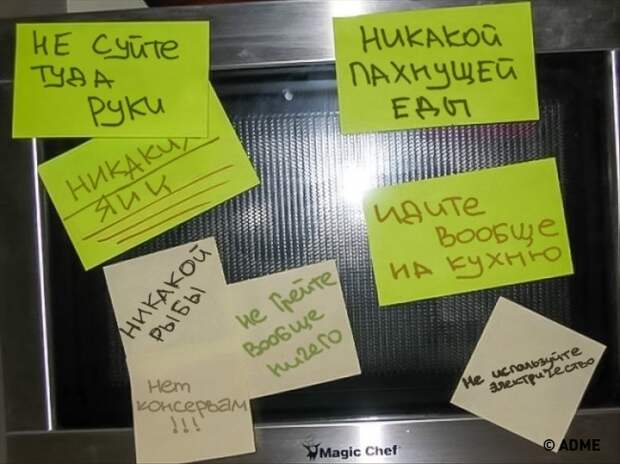 НЕ СУЙТЕ
ТУДА
РУКИ
НИКАКОЙ
ПАХНУЩЕЙ
ЕДЫ
НИКАКИХ
ЯИЦ
ИДИТЕ
ВООБЩЕ
НА КУХНЮ
НИКАКОЙ
РЫБЫ
Не грейте
вообще
ничего
Нет
консервам
!!!
Не используйте
электричество
Magic Chef
© ADME